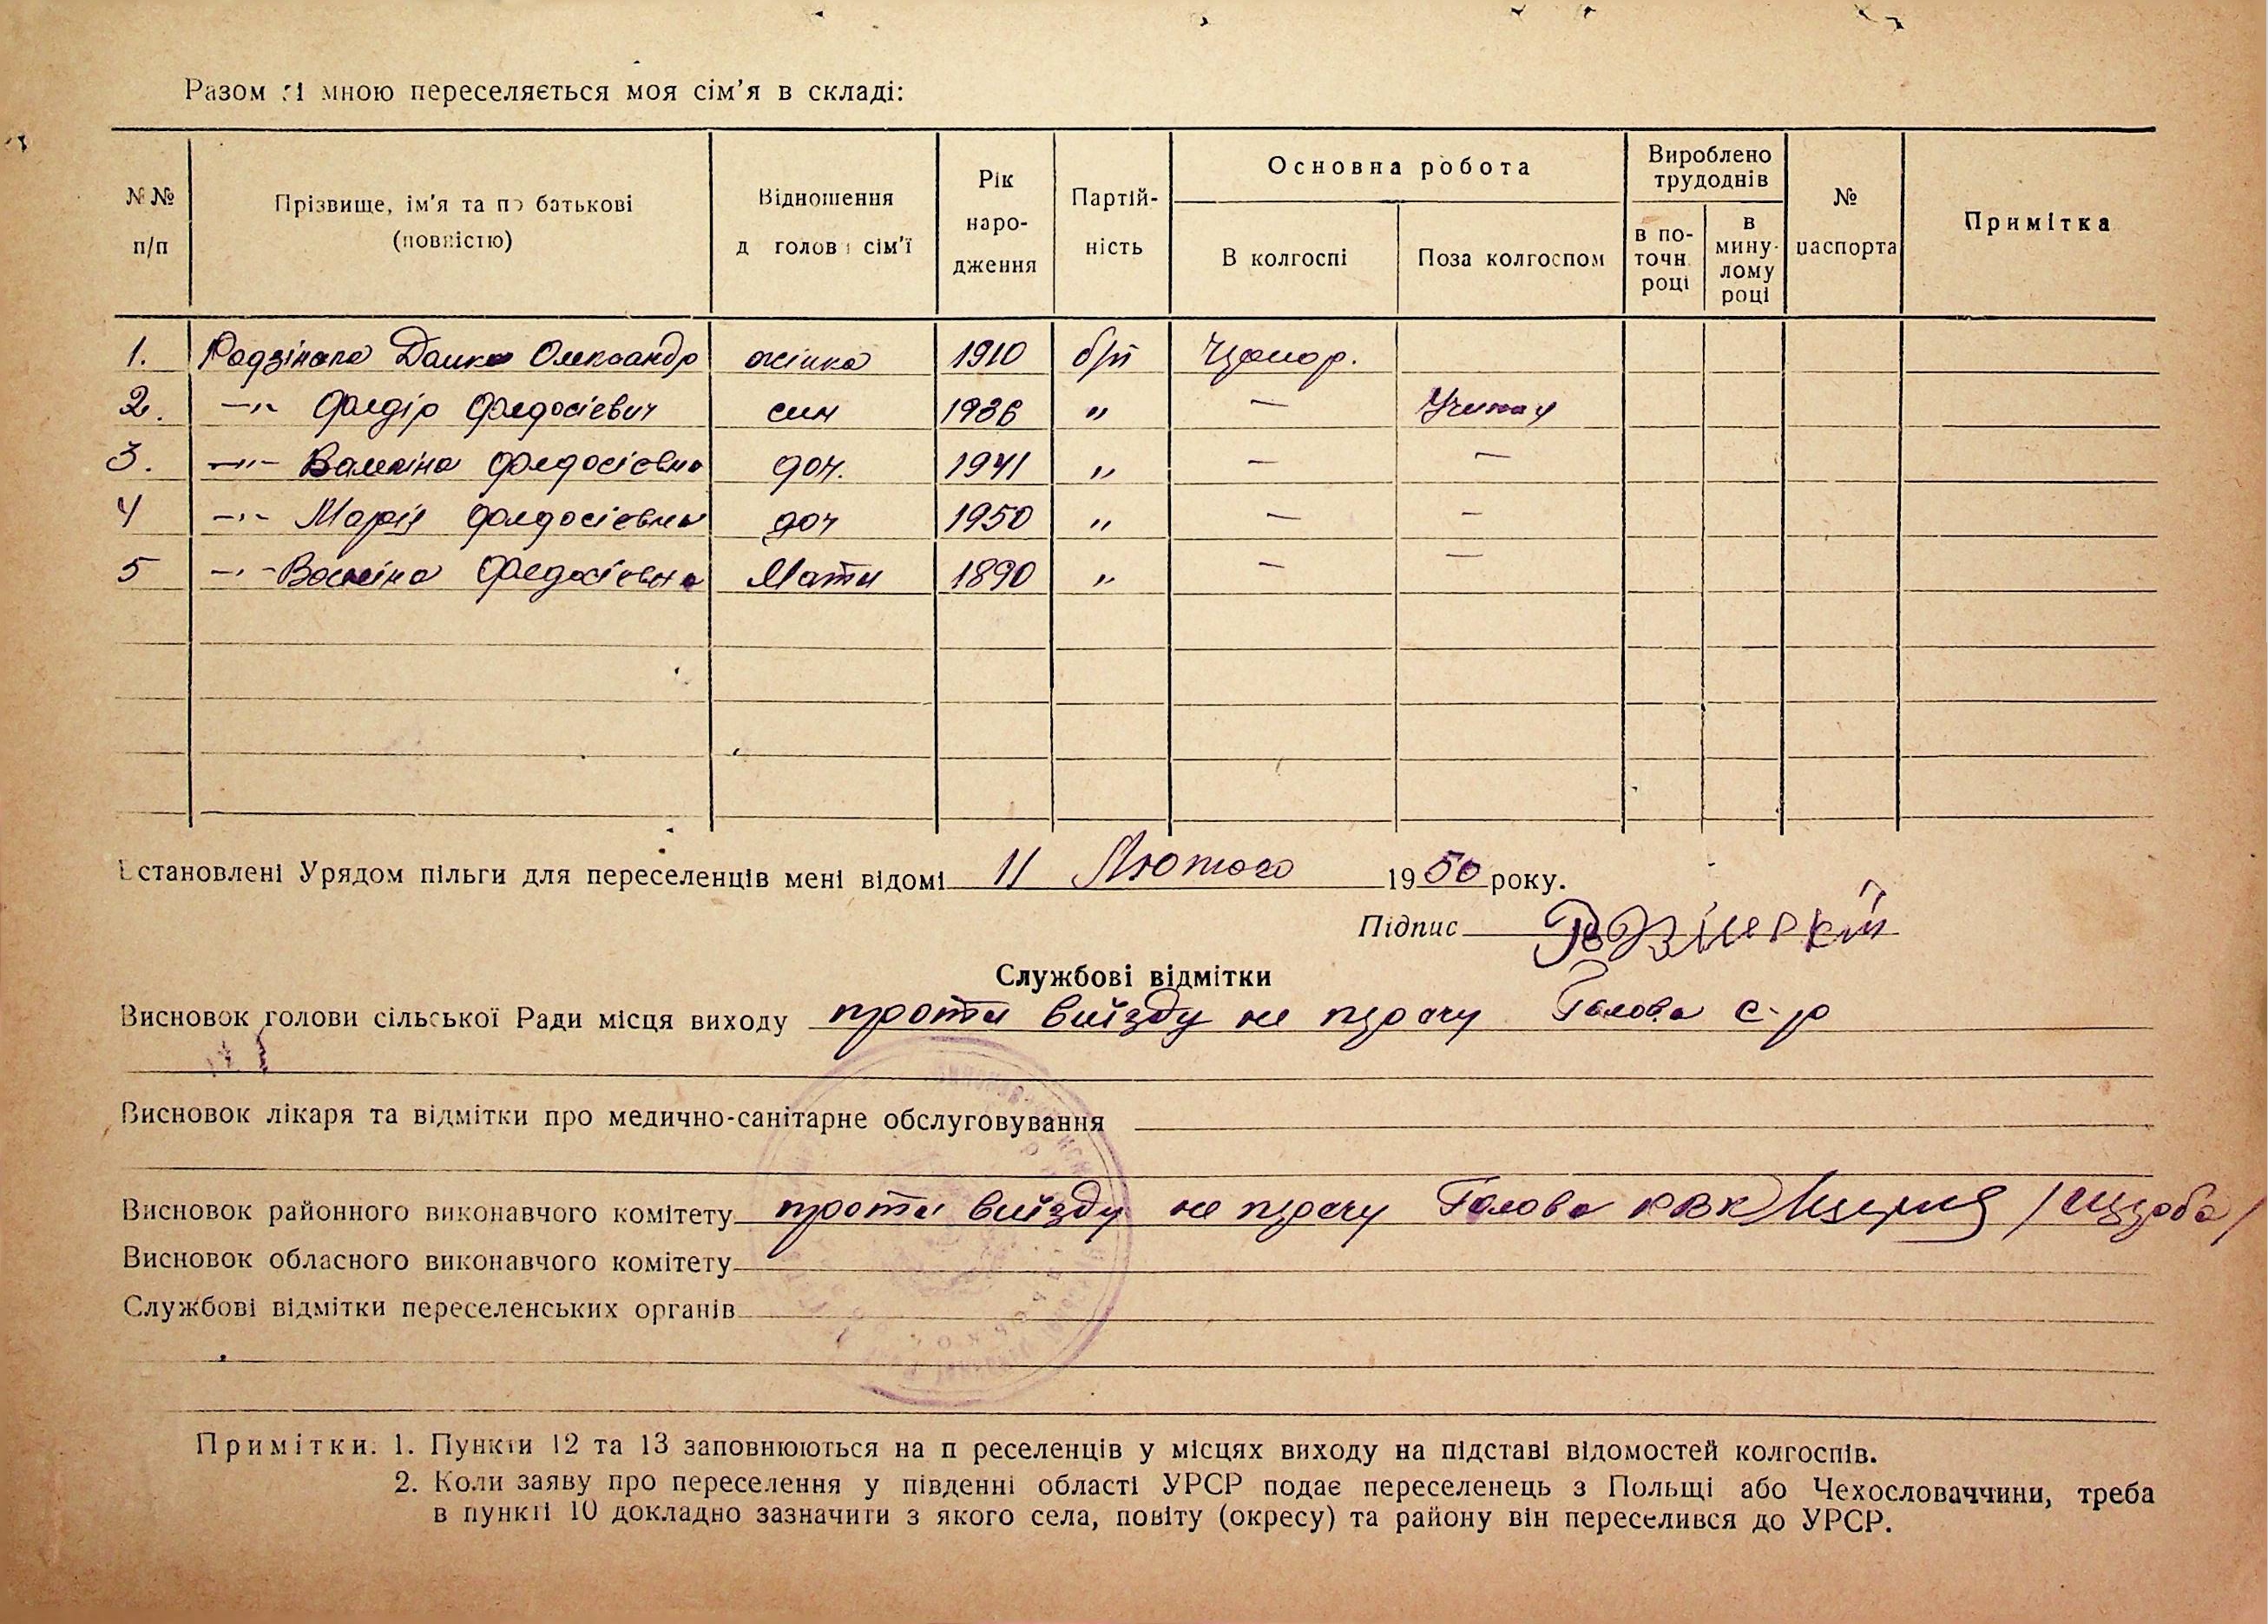 Разом зі мною переселяється моя сім'я в складі:
№№ п/п
Прізвище, ім'я та по батькові (повністю)
Відношення д голов сім'ї
Рік народження
Партійність
Основна робота
В колгоспі
Поза колгоспом
Вироблено трудоднів
в поточн. році
в минулому році
№ паспорта
Примітка
1. Домка Олександр жінка 1910 б/п
2. –"– Федір Федосієвич син 1936 "  –
3. –"– Федосієвна доч. 1941 " – –
4 –"– Марія Федосієвна доч 1950 " – –
5 –"– Федосієвна Мати 1890 " – –
Встановлені Урядом пільги для переселенців мені відомі 11 Лютого 1950 року.
Підпис
Службові відмітки
Висновок голови сільської Ради місця виходу проти виїзду не Голова с-р
Висновок лікаря та відмітки про медично-санітарне обслуговування
Висновок районного виконавчого комітету проти виїзду не Голова РВК
Висновок обласного виконавчого комітету
Службові відмітки переселенських органів
Примітки. 1. Пункти 12 та 13 заповнюються на п реселенців у місцях виходу на підставі відомостей колгоспів.
2. Коли заяву про переселення у південні області УРСР подає переселенець з Польщі або Чехословаччини, треба
в пункті 10 докладно зазначити з якого села, повіту (окресу) та району він переселився до УРСР.